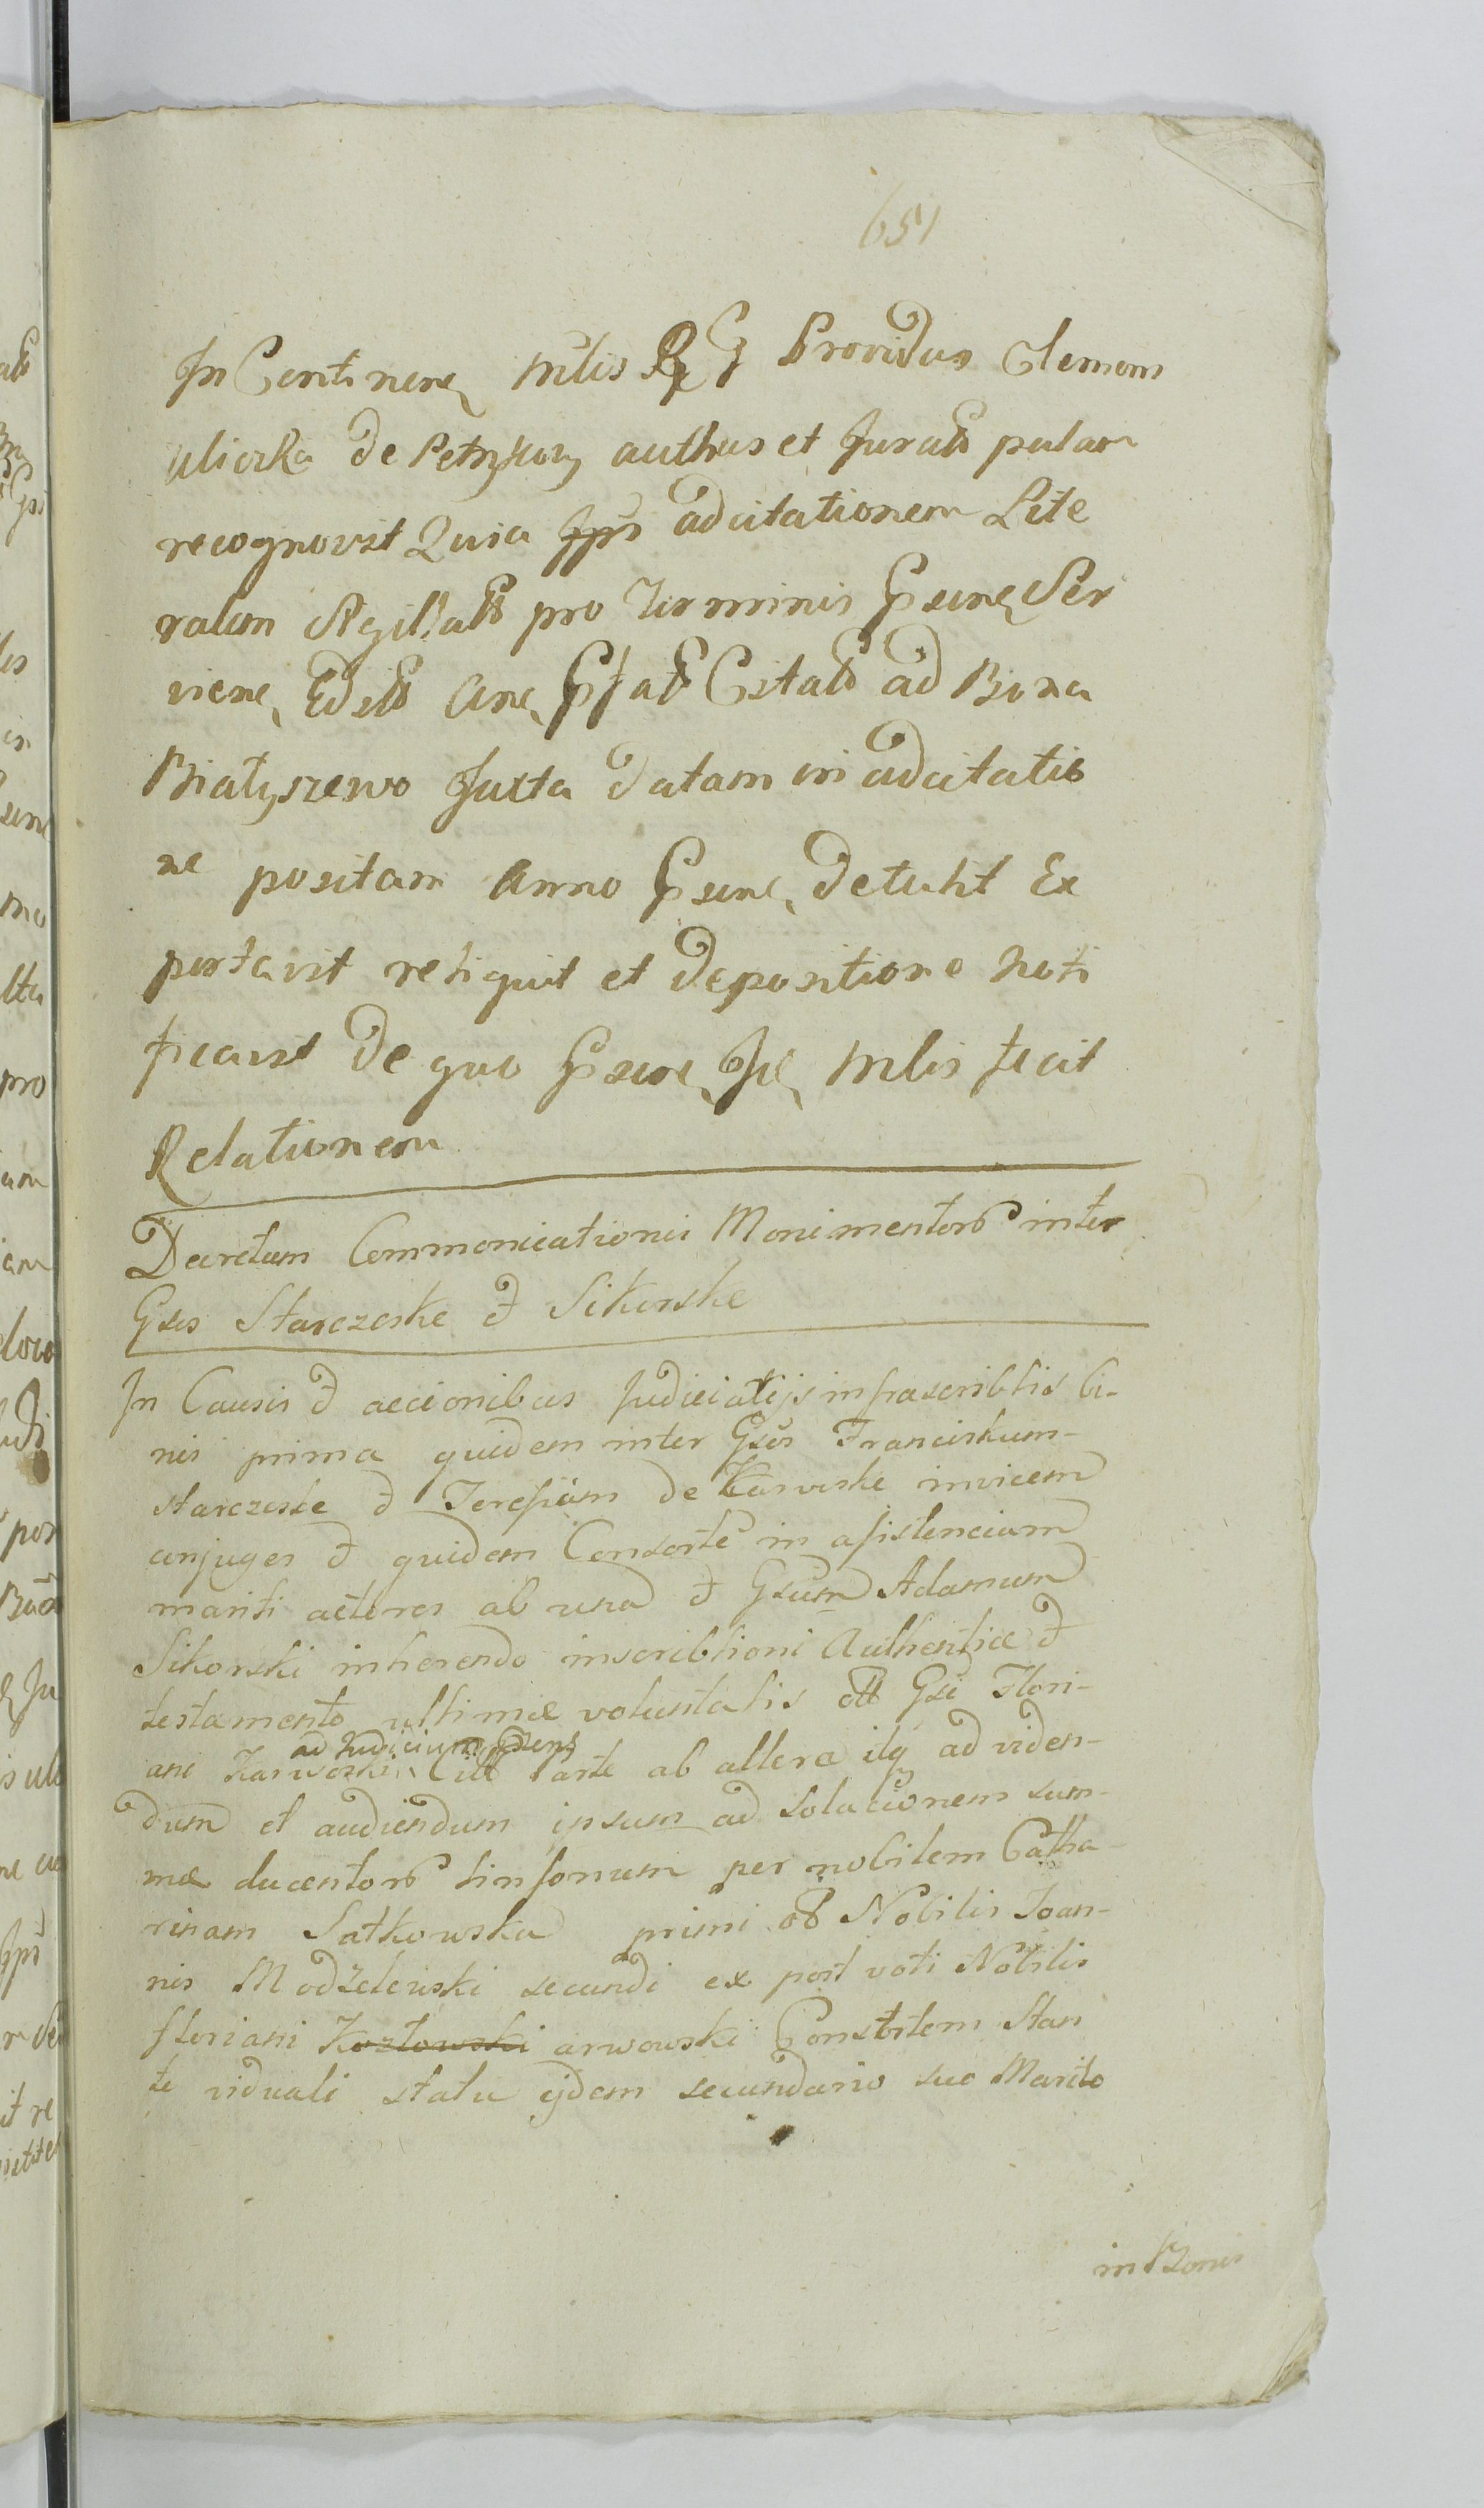 651
In Continenẹ Mlis R G Providus Clemens
uliczka de Petrykozy authus et Juratus palam
recognovit Quia Ips adcitationem Lite
ralem Sigillatt pro Terminis psene Ser
viene Edit Ane Citatt ad Bona
Białyszewo Juxta datam in adcitatio
ne positam Anno psene detulit Ex
portavit reliquit et depositione noti
ficavit de quo psene Mlis fecit
Relationem
Decretum Communicationis Monimentor inter
Gsos Starczeske et Sikorske
In Causis et accionibus Judicialijs infrascribtis bi-
nis prima quidem inter Gsos Franciskum
Starczeske et Teresiam de Karwoske invicem
conjuges et quidem Consorte in asistenciam
mariti actores ab una et Gsum Adamum
Sikorski inherendo inscribtioni Authenticæ et
testamento ultimæ voluntatis Gsi Flori-
ad Judicium psens
ani Karwoski Citt Parte ab altera itq ad viden-
dum et audiendum ipsum ad solucionem sum-
mæ ducentor tinfonum per nobilem Catha-
rinam Satkowska primi Nobilis Joan-
nis Modzelewski secundi ex post voti Nobilis
floriani Kozłowski arwowski Consortem Stan
te viduali statu ejdem secundario suo Marito
in Bonis